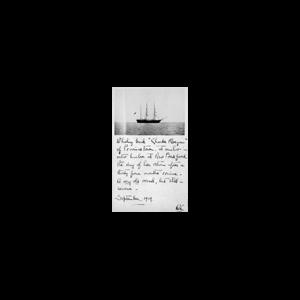 Whaling bark "Charles Morgan"
of Provincetown, at anchor in
outer harbor at New Bedford
the day of her return from a
thirty four months cruise.
A very old vessel, but still in
service.
September, 1919.